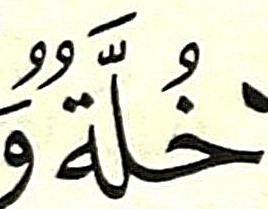 خُلَّةٌ وَ